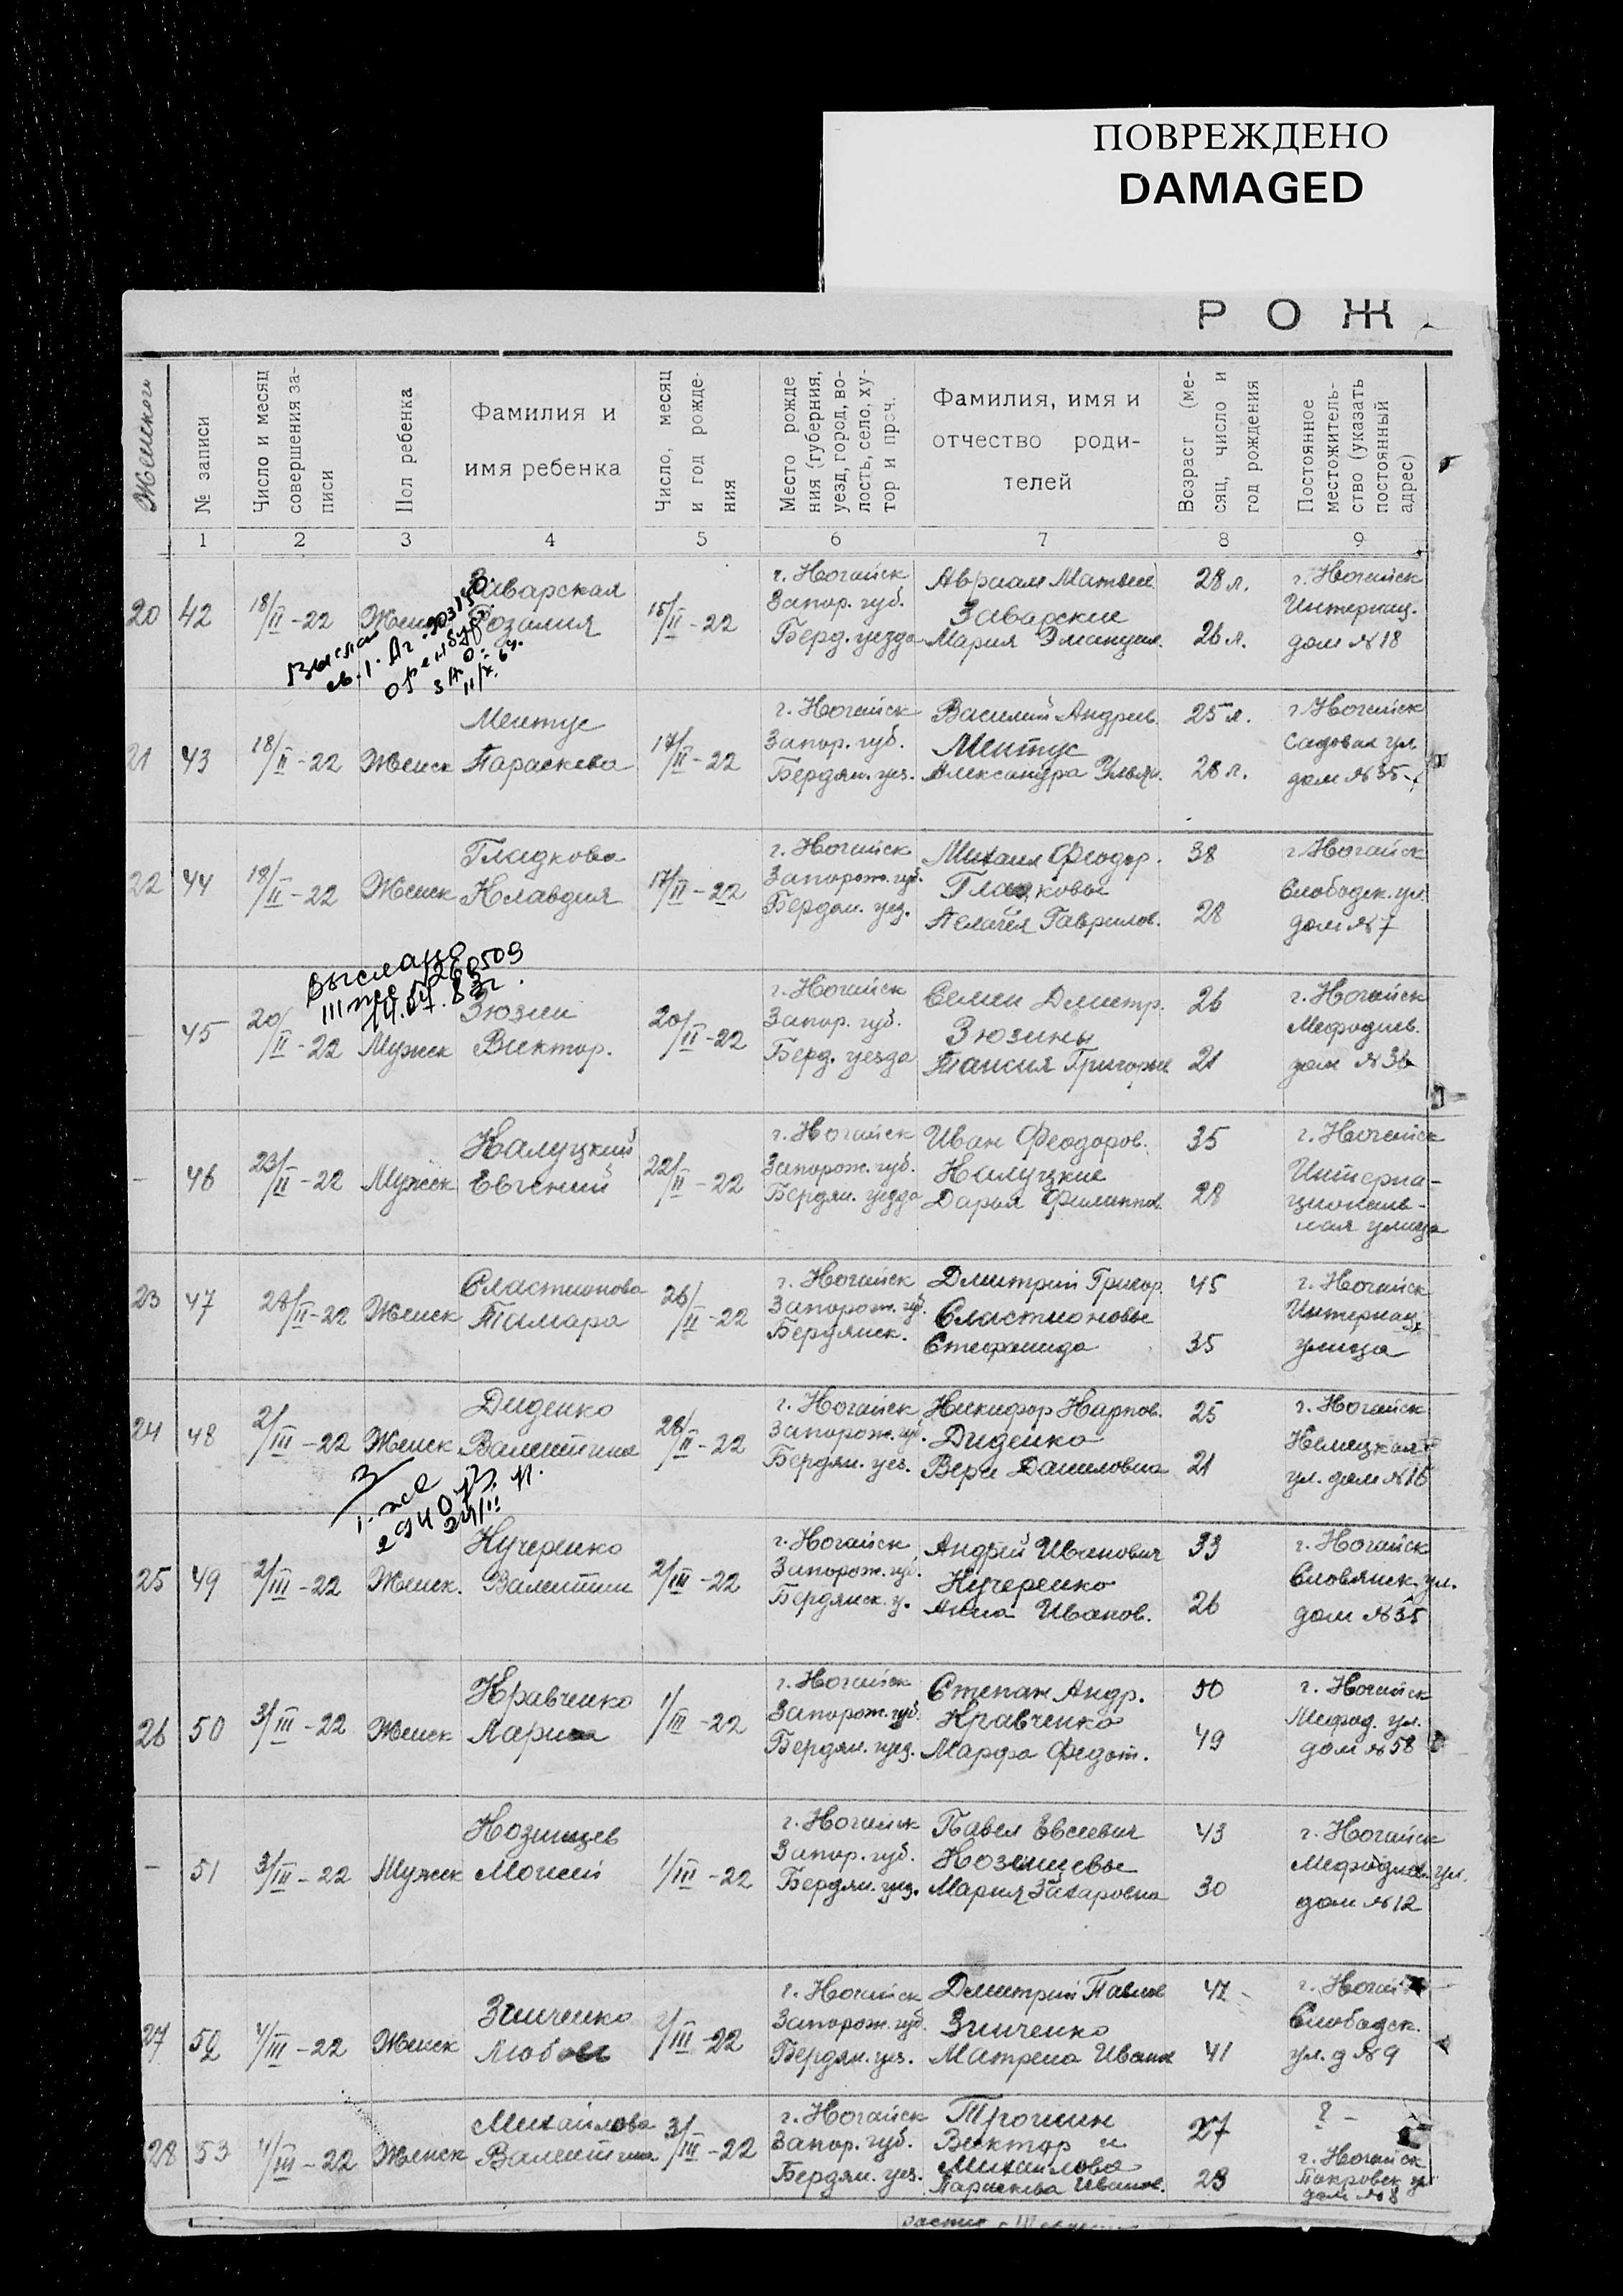 ПОВРЕЖДЕНО
DAMAGED
Р О Ж
Женского
№ записи
Число и месяц
совершения за-
писи
Пол ребенка
Фамилия и
имя ребенка
Число, месяц
и год рожде-
ния
Место рожде
ния (губерния,
уезд, город, во-
лость, село, ху-
тор и проч.
Фамилия, имя и
отчество роди-
телей
Возраст (ме-
сяц, число и
год рождения
Постоянное
местожитель-
ство (указать
постоянный
адрес)
1 2 3 4 5 6 7 8 9
20 42 18/II-22 Женск
Заварская
Розалия
15/II-22
г. Ногайск
Запор. губ.
Берд. уезда
Авраам Матвее
Заварские
Мария Эмануил.
28 л.
26 л.
г. Ногайск
Интернац.
дом №18
21 43 18/II-22 Женск
Ментус
Параскева
17/II-22
г. Ногайск
Запор. губ.
Бердян. уез.
Василий Андреев.
Ментус
Александра
25 л.
28 л.
г. Ногайск
Садовая ул
дом №35
22 44 18/II-22 Женск
Гладкова
Клавдия
17/II-22
г. Ногайск
Запорож. губ.
Бердян. уез.
Михаил Феодор.
Гладковы
Пелагея Гаврилов.
38
28
г. Ногайск
Слободск. ул.
дом №7
Выслано
14.07.83г.
– 45 20/II-22 Мужск
Зюзин
Виктор.
20/II-22
г. Ногайск
Запор. губ.
Берд. уезда
Семен Дмитр.
Зюзины
Таисия Григорье
26
21
г. Ногайск
Мефодиев.
дом
– 46 23/II-22 Мужск
Калуцкий
Евгений
22/II-22
г. Ногайск
Запорож. губ.
Бердян. уезда
Иван Феодоров.
Калуцкие
Дарья Филиппов
35
28
г. Ногайск
Интерна-
циональ-
ная улица
23 47 28/II-22 Женск
Сластионова
Тамара
26/II-22
г. Ногайск
Запорож. губ.
Бердянск.
Дмитрий Григор.
Сластионовы
Стефанида
45
35
г. Ногайск
Интернац.
улица
24 48 2/III-22 Женск
Диденко
Валентина
28/II-22
г. Ногайск
Запорож. губ.
Бердян. уез.
Никифор Карпов.
Диденко
Вера Даниловна
25
21
г. Ногайск
Немецкая
ул. дом №16
25 49 2/III-22 Женск.
Кучеренко
Валентин
2/III-22
г. Ногайск
Запорож. губ.
Бердянск. у.
Андрей Иванович
Кучеренко
Анна Иванов.
33
26
г. Ногайск
Словянск. ул.
дом №35
26 50 3/III-22 Женск
Кравченко
Лариса
1/III-22
г. Ногайск
Запорож. губ.
Бердян. уез.
Степан Андр.
Кравченко
Марфа Федот.
50
49
г. Ногайск
Мефод. ул.
дом №58
– 51 3/III-22 Мужск
Козинцев
Моисей
1/III-22
г. Ногайск
Запор. губ.
Бердян. уез.
Павел Евсеевич
Козинцевы
Мария Захаровна
43
30
г. Ногайск
Мефодиев. ул.
дом №12
27 52 4/III-22 Женск
Зинченко
Любовь
2/III-22
г. Ногайск
Запорож. губ.
Бердян. уез.
Дмитрий Павлов
Зинченко
Матрена Иванов
47
41
г. Ногай
Слободск.
ул. д №9
28 53 4/III-22 Женск
Михайлова
Валентина
3/III-22
г. Ногайск
Запор. губ.
Бердян. уез.
Трошин
Виктор и
Михайлова
Параскева Иванов.
27
23
? –
г. Ногайск
Покровск ул
дом №8